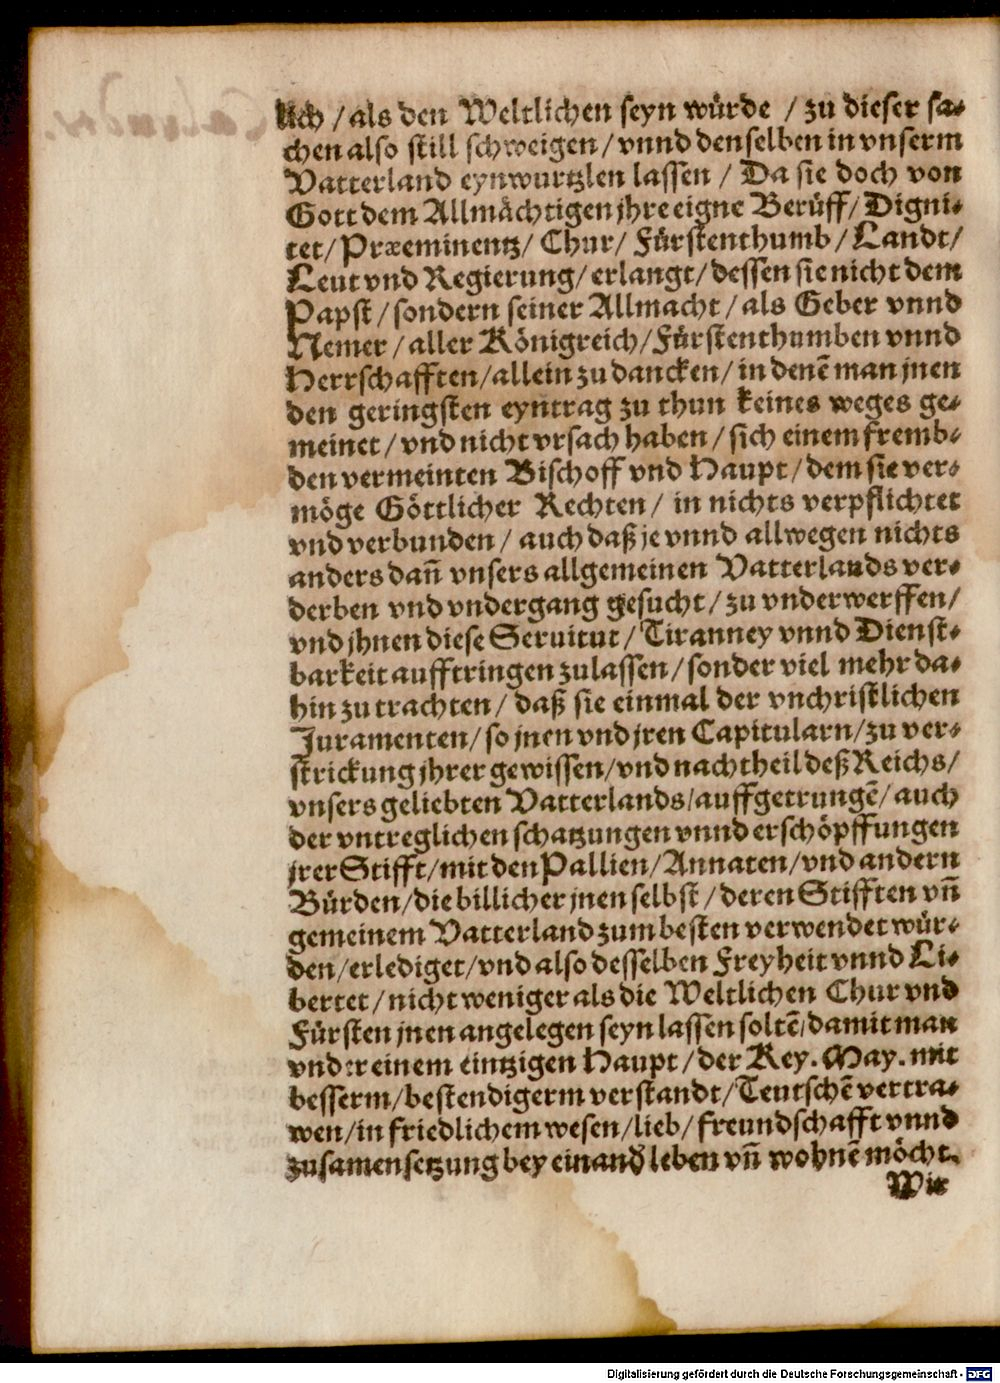 lich / als den Weltlichen seyn würde / zu dieser sa-
chen also still schweigen / vnnd denselben in vnserm
Vatterland eynwurtzlen lassen / Da sie doch von
Gott dem Allmächtigen jhre eigne Berüff / Digni-
tet / Præeminentz / Chur / Fürstenthumb / Landt /
Leut vnd Regierung / erlangt / dessen sie nicht dem
Papst / sondern seiner Allmacht / als Geber vnnd
Nemer / aller Königreich / Fürstenthumben vnnd
Herrschafften / allein zu dancken / in denē man jnen
den geringsten eyntrag zu thun keines weges ge-
meinet / vnd nicht vrsach haben / sich einem fremb-
den vermeinten Bischoff vnd Haupt / dem sie ver-
möge Göttlicher Rechten / in nichts verpflichtet
vnd verbunden / auch daß je vnnd allwegen nichts
anders dañ vnsers allgemeinen Vatterlands ver-
derben vnd vndergang gesucht / zu vnderwerffen /
vnd jhnen diese Seruitut / Tiranney vnnd Dienst-
barkeit aufftringen zulassen / sonder viel mehr da-
hin zu trachten / daß sie einmal der vnchristlichen
Juramenten / so jnen vnd jren Capitularn / zu ver-
strickung jhrer gewissen / vnd nachtheil deß Reichs /
vnsers geliebten Vatterlands / auffgetrungē / auch
der vntreglichen schatzungen vnnd erschöpffungen
jrer Stifft / mit den Pallien / Annaten / vnd andern
Bürden / die billicher jnen selbst / deren Stifften vñ
gemeinem Vatterland zum besten verwendet wür-
den / erlediget / vnd also desselben Freyheit vnnd Li-
bertet / nicht weniger als die Weltlichen Chur vnd
Fürsten jnen angelegen seyn lassen soltē / damit man
vnder einem eintzigen Haupt / der Key. May. mit
besserm / bestendigerm verstandt / Teutschē vertra-
wen / in friedlichem wesen / lieb / freundschafft vnnd
zusamensetzung bey einand leben vñ wohnē möcht.
Wir
Digitalisierung gefördert durch die Deutsche Forschungsgemeinschaft - DFG